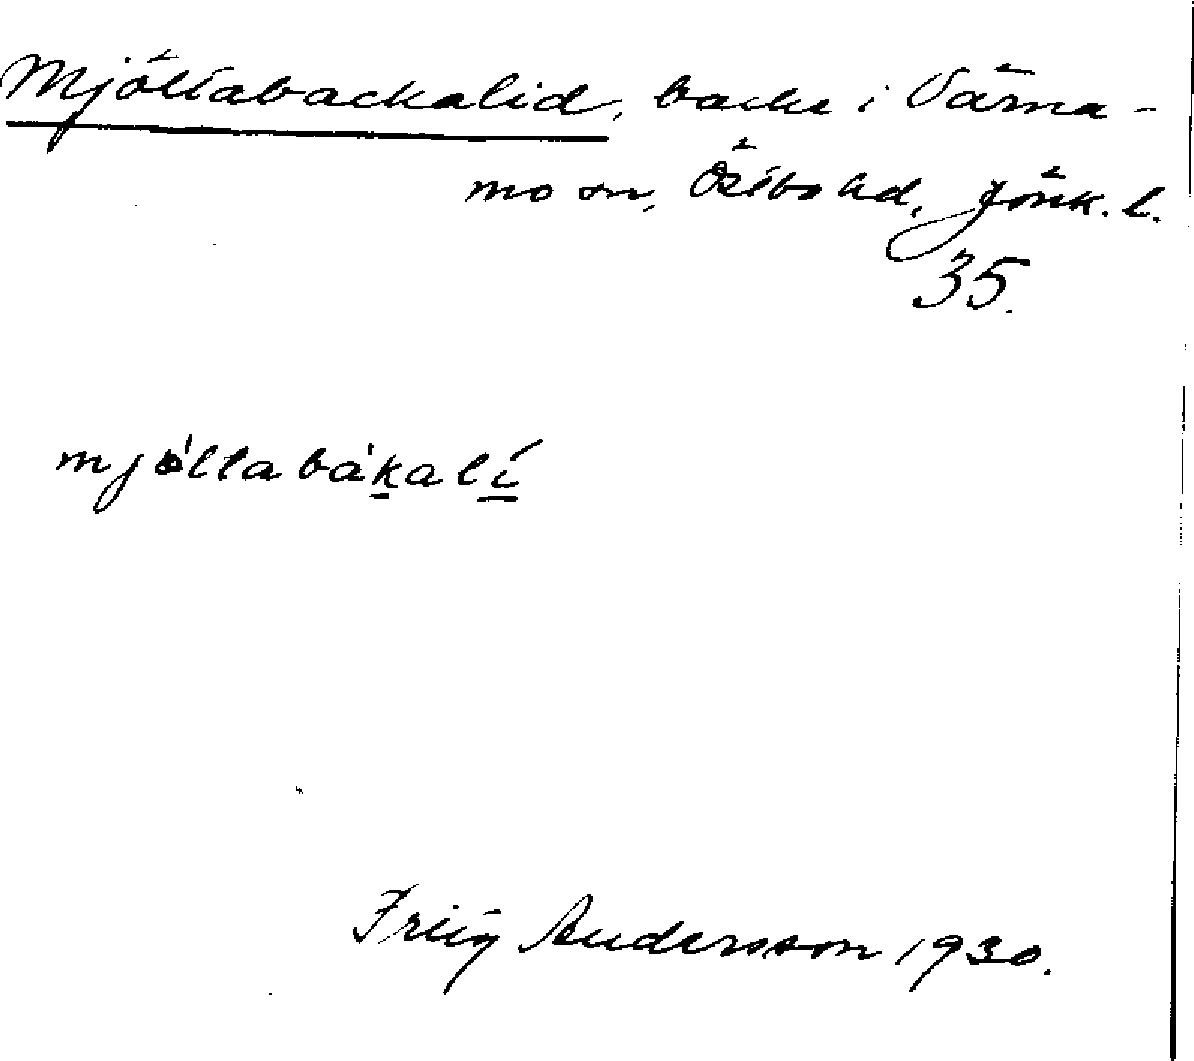 Mjöltabackalid, backe i Värna-
mo sn, Östbo hd, Jönk. l.
35.
mjölltabákalí
Frig Andersson 1930.